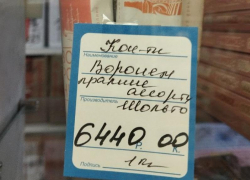 Кон-ты
Наименование
Воронеж
пралине
ассорти
Производитель
Шольто
6440 Р. 00 К.
Подпись 1 кг